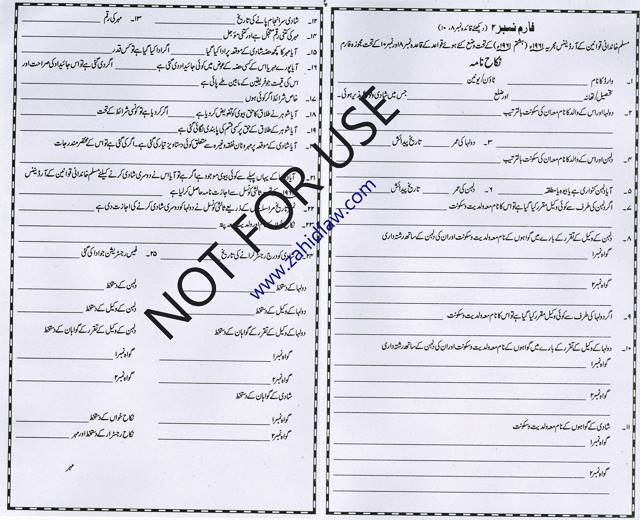 فارم نمبر ۲ (دیکھئے قاعدہ نمبر ۸، ۱۰)
مسلم خاندانی قوانین کے آرڈیننس مجریہ ۱۹۶۱ء (ہشتم ۱۹۶۱ء) کے تحت وضع کئے ہوئے قواعد کے قاعدہ نمبر ۸ اور نمبر ۱۰ کے تحت مجوزہ فارم
نکاح نامہ
۱۔ وارڈ کا نام ٹاؤن/یونین
تحصیل/تھانہ اور ضلع جس میں شادی وقوع پذیر ہوئی۔
۲۔ دولہا اور اس کے والد کا نام معہ ان کی سکونت بالترتیب
۳۔ دولہا کی عمر تاریخ پیدائش
۴۔ دلہن اور اس کے والد کا نام معہ ان کی سکونت بالترتیب
۵۔ آیا دلہن کنواری ہے یا بیوہ یا مطلقہ ۶۔ دلہن کی عمر تاریخ پیدائش
۷۔ اگر دلہن کی طرف سے کوئی وکیل مقرر کیا گیا ہے تو اس کا نام معہ ولدیت و سکونت
۸۔ دلہن کے وکیل کے تقرر کے بارے میں گواہوں کے نام معہ ولدیت و سکونت اور ان کی دلہن کے ساتھ رشتہ داری
گواہ نمبر۱
گواہ نمبر۲
۹۔ اگر دولہا کی طرف سے کوئی وکیل مقرر کیا گیا ہے تو اس کا نام معہ ولدیت و سکونت
۱۰۔ دولہا کے وکیل کے تقرر کے بارے میں گواہوں کے نام معہ ولدیت و سکونت اور ان کی دلہن کے ساتھ رشتہ داری
گواہ نمبر۱
گواہ نمبر۲
۱۱۔ شادی کے گواہوں کے نام معہ ولدیت و سکونت
گواہ نمبر۱
گواہ نمبر۲
۱۲۔ شادی سرانجام پانے کی تاریخ ۱۳۔ مہر کی رقم
۱۴۔ مہر کی کتنی رقم معجل ہے اور کتنی مؤجل
۱۵۔ آیا مہر کا کچھ حصہ شادی کے موقعہ پر ادا کیا گیا اگر ادا کیا گیا ہے تو کس قدر
۱۶۔ آیا پورے مہر یا اس کے کسی حصہ کے عوض میں کوئی جائیداد دی گئی ہے اگر دی گئی ہے تو اس جائیداد کی صراحت اور
اس کی قیمت جو فریقین کے مابین طے پائی ہے
۱۷۔ خاص شرائط اگر کوئی ہوں
۱۸۔ آیا شوہر نے طلاق کا حق بیوی کو تفویض کر دیا ہے اگر کر دیا ہے تو کونسی شرائط کے تحت
۱۹۔ آیا شوہر کے طلاق کے حق پر کسی قسم کی پابندی لگائی گئی ہے
۲۰۔ آیا شادی کے موقعہ پر مہر و نان نفقہ وغیرہ سے متعلق کوئی دستاویز تیار کی گئی ہے۔ اگر کی گئی ہے تو اس کے مختصر مندرجات
۲۱۔ آیا دولہا کے یہاں پہلے سے کوئی بیوی موجود ہے اگر ہے تو آیا اس نے دوسری شادی کرنے کیلئے مسلم خاندانی قوانین کے آرڈیننس
ثالثی کونسل سے اجازت نامہ حاصل کر لیا ہے
۲۲۔ کونسل نے دولہا کو دوسری شادی کرنے کی اجازت دی ہے
۲۳۔
۲۴۔ شادی کو درج رجسٹر کرانے کی تاریخ ۲۵۔ فیس رجسٹریشن جو ادا کی گئی
دولہا کے دستخط دلہن کے دستخط
دولہا کے وکیل کے دستخط دلہن کے وکیل کے دستخط
دولہا کے وکیل کے تقرر کے گواہان کے دستخط دلہن کے وکیل کے تقرر کے گواہان کے دستخط
گواہ نمبر۱ گواہ نمبر۱
گواہ نمبر۲ گواہ نمبر۲
شادی کے گواہان کے دستخط
گواہ نمبر۱ نکاح خواں کے دستخط
گواہ نمبر۲ نکاح رجسٹرار کے دستخط اور مہر
مہر
NOT FOR USE
www.zahidlaw.com